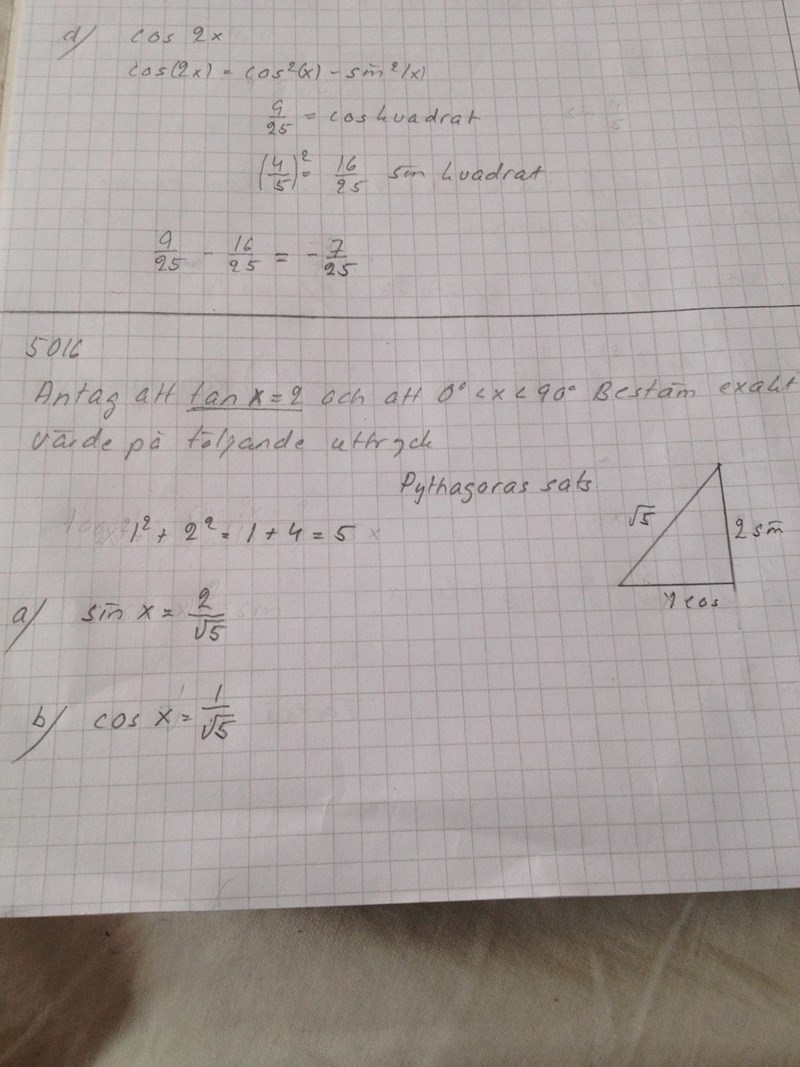 d) cos 2x
cos(2x) = cos²(x) - sin²(x)
9/25 = cos kvadrat
(4/5)² = 16/25 sin kvadrat
9/25 - 16/25 = - 7/25
5016
Antag att tan x = 2 och att 0° < x < 90° Bestäm exakt
värde på följande uttryck
Pythagoras sats
1² + 2² = 1 + 4 = 5
√5
2 sin
1 cos
a) sin x = 2/√5
b) cos x = 1/√5